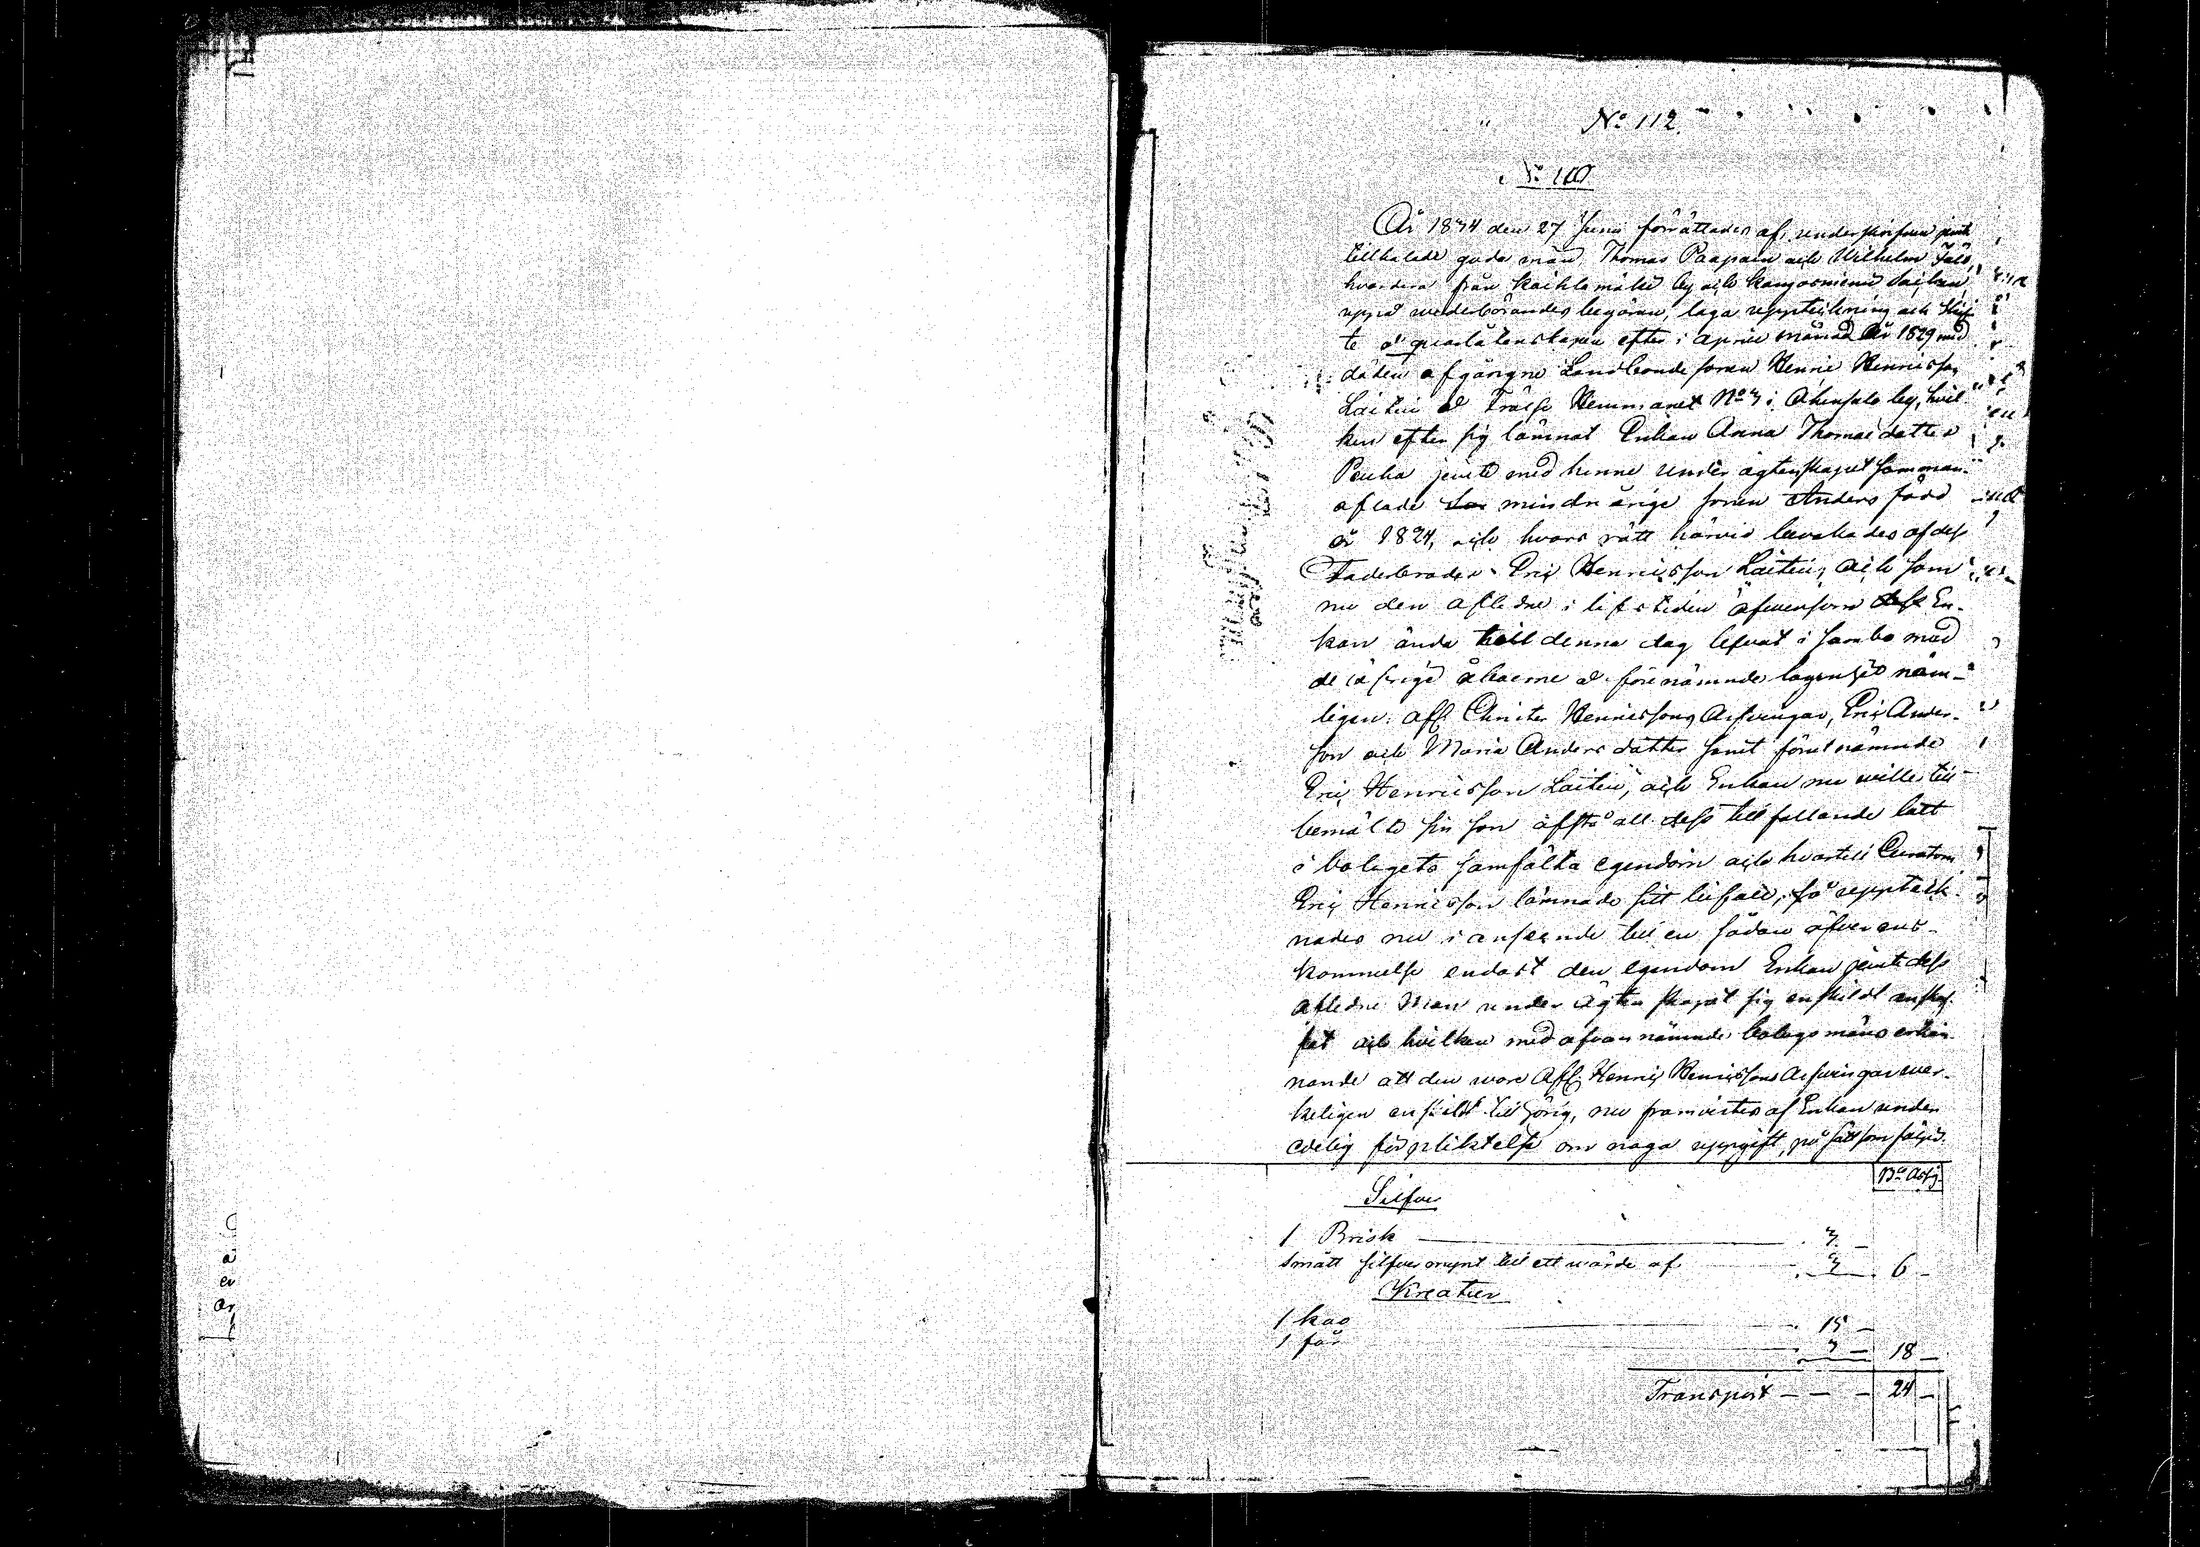 No 112.
No 110
År 1834 den 27 Junii förrättades af underskrifven jemte
tillkalade gode män Thomas Paapain och Wilhelm
hvardera från by och
uppå wederbörandes begäran, laga uppteckning och Skif-
te å quarlåtenskapen efter i April månad år 1829 med
döden afgångne Landbonde sonen Henric Henricsson
Laitin å Frälse Hemmanet No 3 i by, hvil-
ken efter sig lämnat Enkan Anna Thomasdotter
Peuha jemte med henne under ägtenskapet samman-
aflade minderårige sonen Anders född
år 1824, och hvars rätt härvid bevakades af dess
Faderbroder Eric Henricsson Laitin, och som
nu den afledne i lifstiden äfvensom dess En-
kan ända till denna dag lefvat i sambo med
de öfrige åboerne å förenämnde lägenhet näm-
ligen: afl. Christer Henricssons Arfvingar, Eric Anders-
son och Maria Andersdotter samt förutnämnde
Eric Henricsson Laitin, och Enkan nu wille till
bemälte sin son afstå all dess tillfallande lått
i bolagets samfälta egendom och hvartill Curatorn
Eric Henricsson lämnade sitt bifall, så uppteck-
nades nu i anseende till en sådan öfverens-
kommelse endast den egendom Enkan jemte dess
aflednе Man under Ägtenskapet sig enskildt anskaf-
fat och hvilken med ofvannämnde bolagsmäns erkän-
nande att den vore Afl. Henric Henricssons Arfvingar wer-
keligen enskildt tillhörig, nu framvistes af Enkan under
edelig förpliktelse om noga uppgift, på sätt som följer.
Bco Assig.
Silfver
1 Brisk 3 -
Smått silfvermynt till ett wärde af 3 - 6 -
Kreatur
1 ko 15 -
1 får 3 - 18 -
Transport - - - 24 -